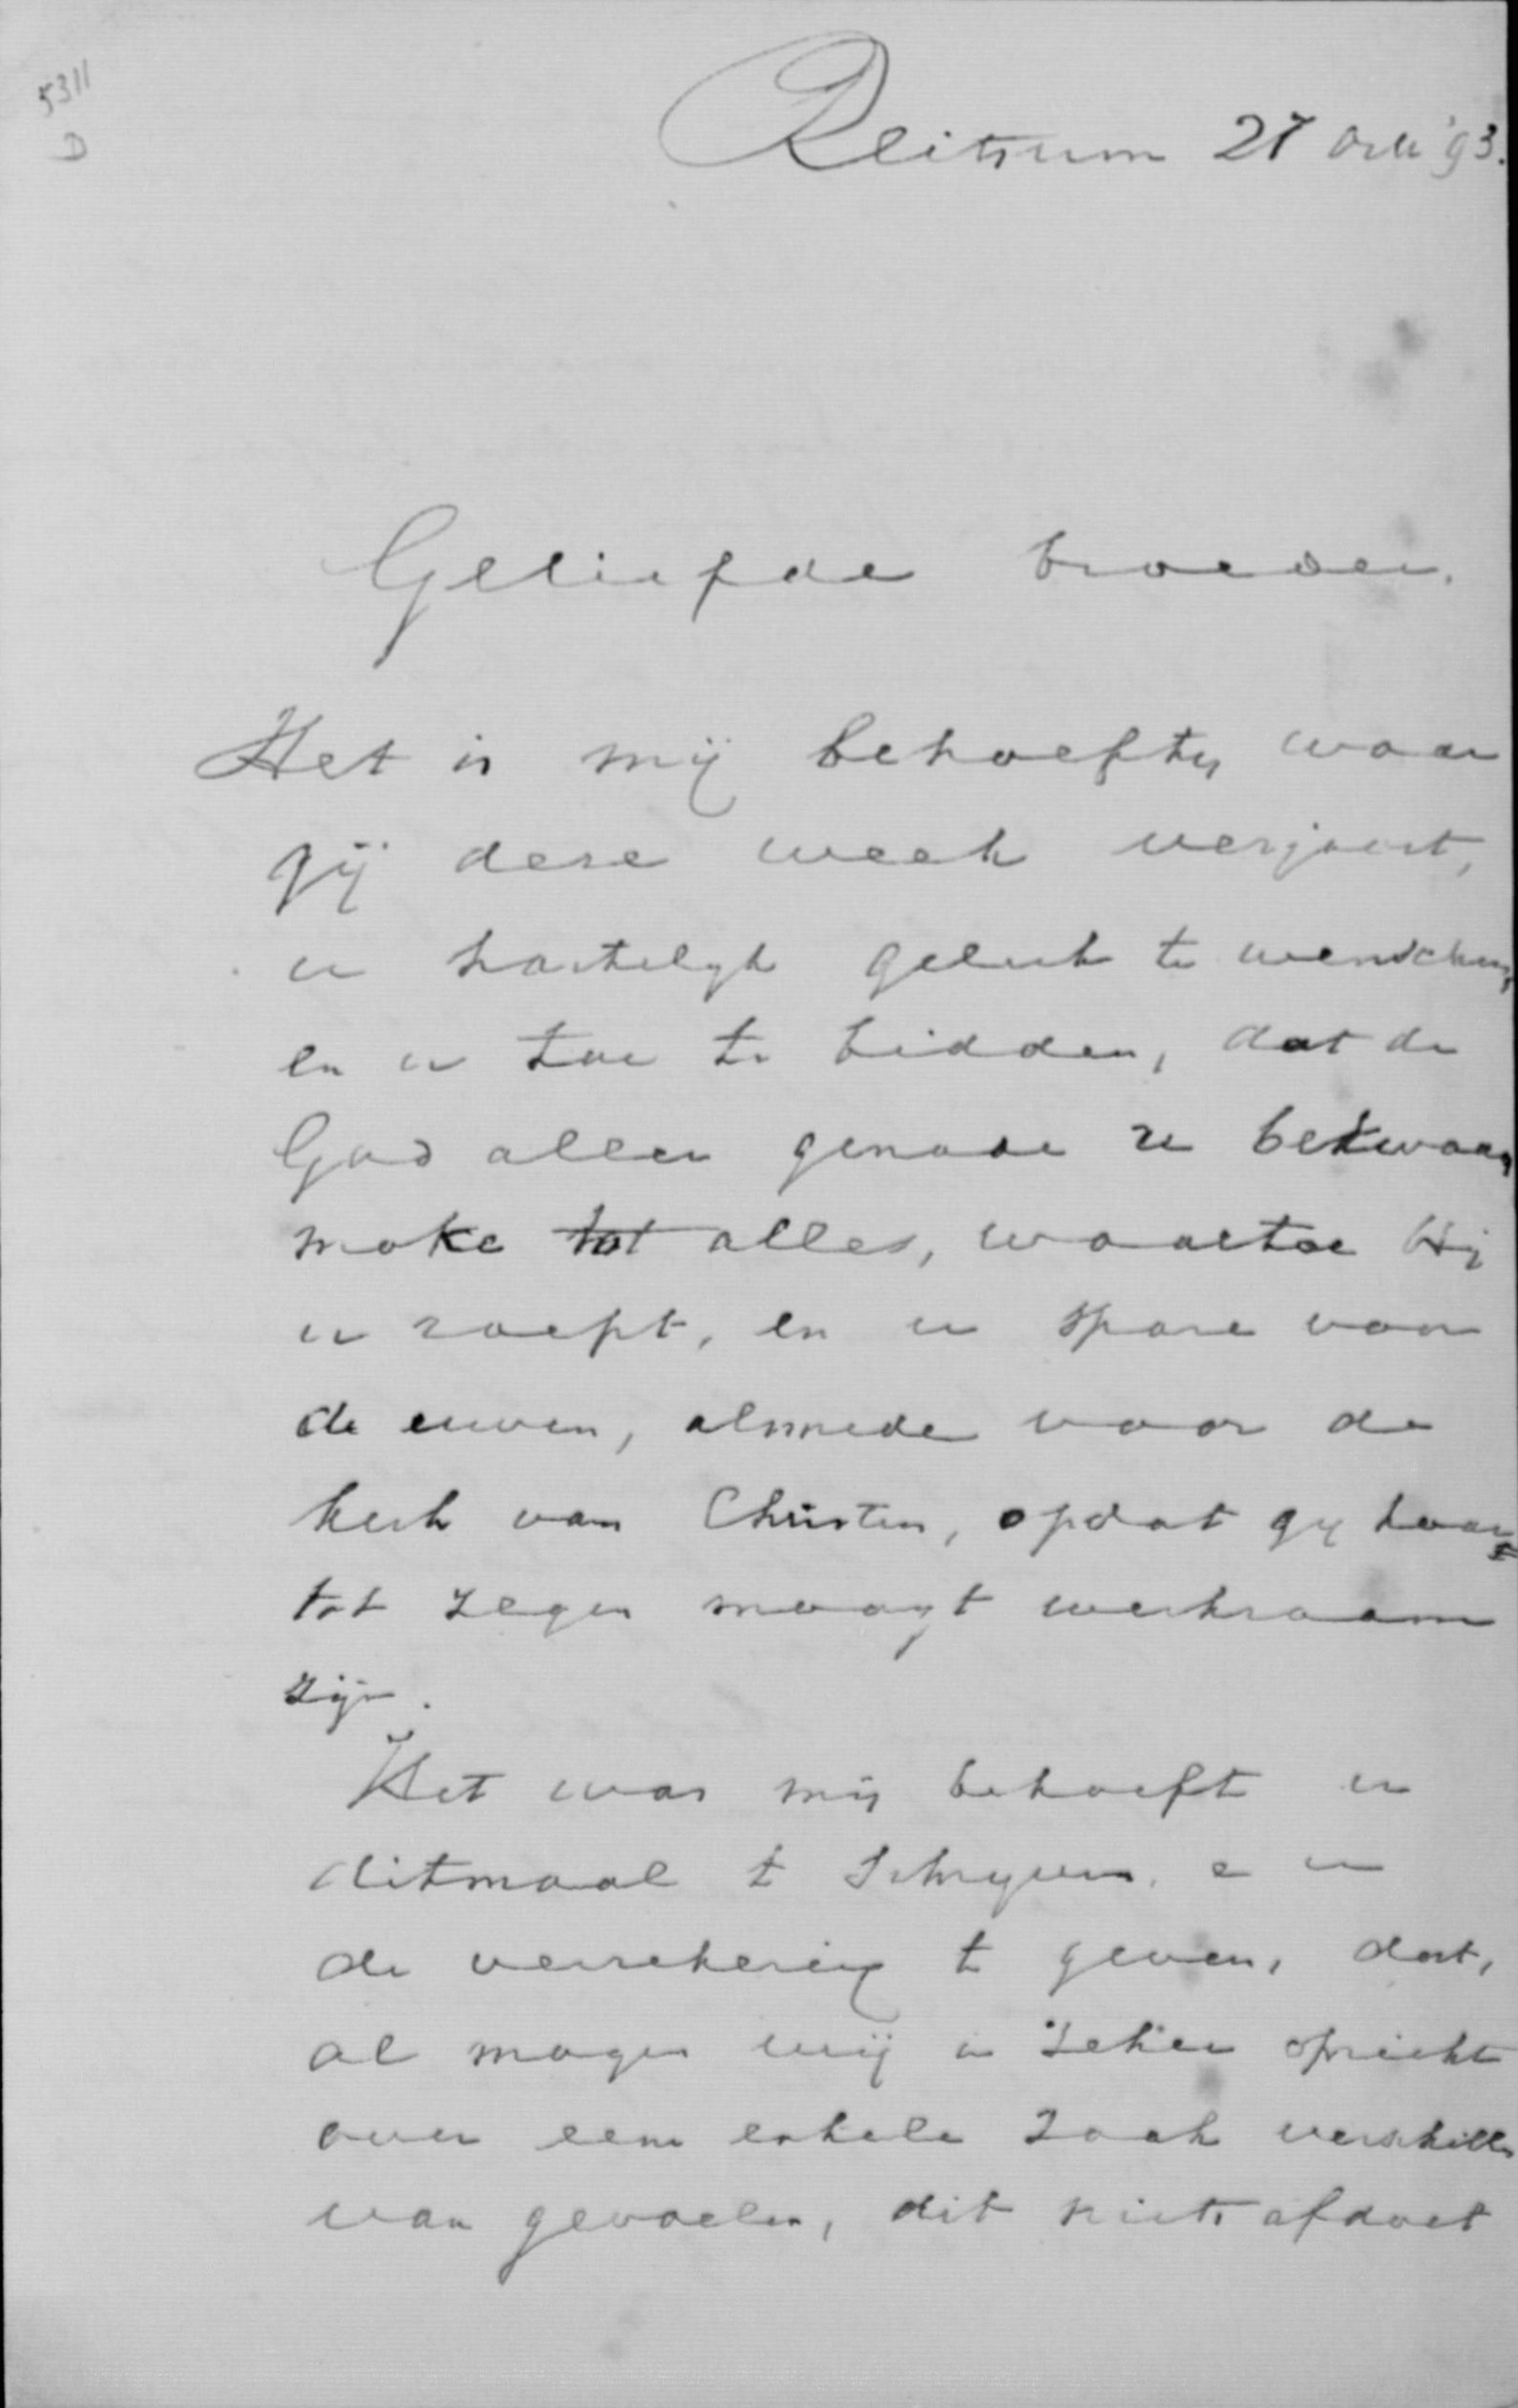 5311
D
Reitsum 27 Oct '93.
Geliefde broeder.
Het is mij behoefte, waar
gij deze week verjaart,
u hartelijk geluk te wenschen,
en u toe te bidden, dat de
God aller genade u bekwaam
make tot alles, waartoe Hij
u roept, en u spare voor
de uwen, alsmede voor de
kerk van Christus, opdat gij haar
tot zegen moogt werkzaam
zijn.
Het was mij behoefte u
ditmaal te schrijven, en u
de verzekering te geven, dat,
al mogen wij in zeker opzicht
over eene enkele zaak verschillen
van gevoelen, dit niets afdoet